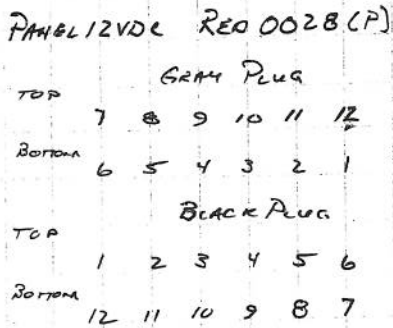 PANEL 12VDC RED 0028 (P)
GRAY PLUG
TOP
7 8 9 10 11 12
BOTTOM
6 5 4 3 2 1
BLACK PLUG
TOP
1 2 3 4 5 6
BOTTOM
12 11 10 9 8 7